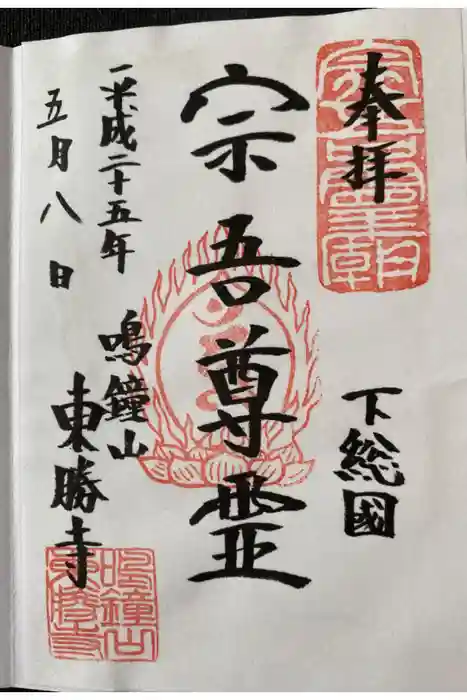 奉拝
下総國
宗吾尊霊
平成二十五年
五月八日
鳴鐘山
東勝寺
鳴鐘山
東勝寺